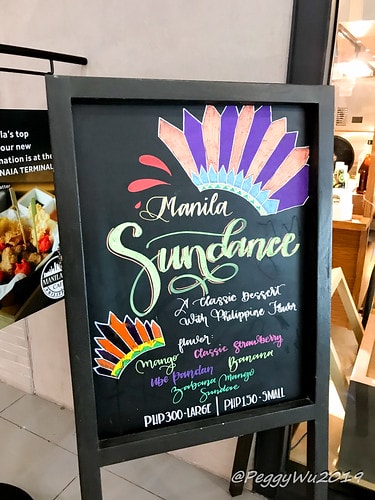 la's top
our new
nation is at the
NAIA TERMINAL
MANILA
Manila
Sundance
A Classic Dessert
With Philippine Flavor
flavor:
Mango Classic Strawberry
Ube Pandan Banana
Zabana Mango
Sundare
PHP300-LARGE | PHP150-SMALL
@PeggyWu2019